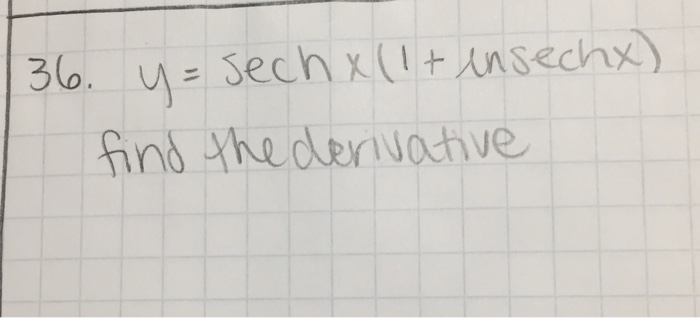 36. y = sech x (1 + ln sech x)
find the derivative